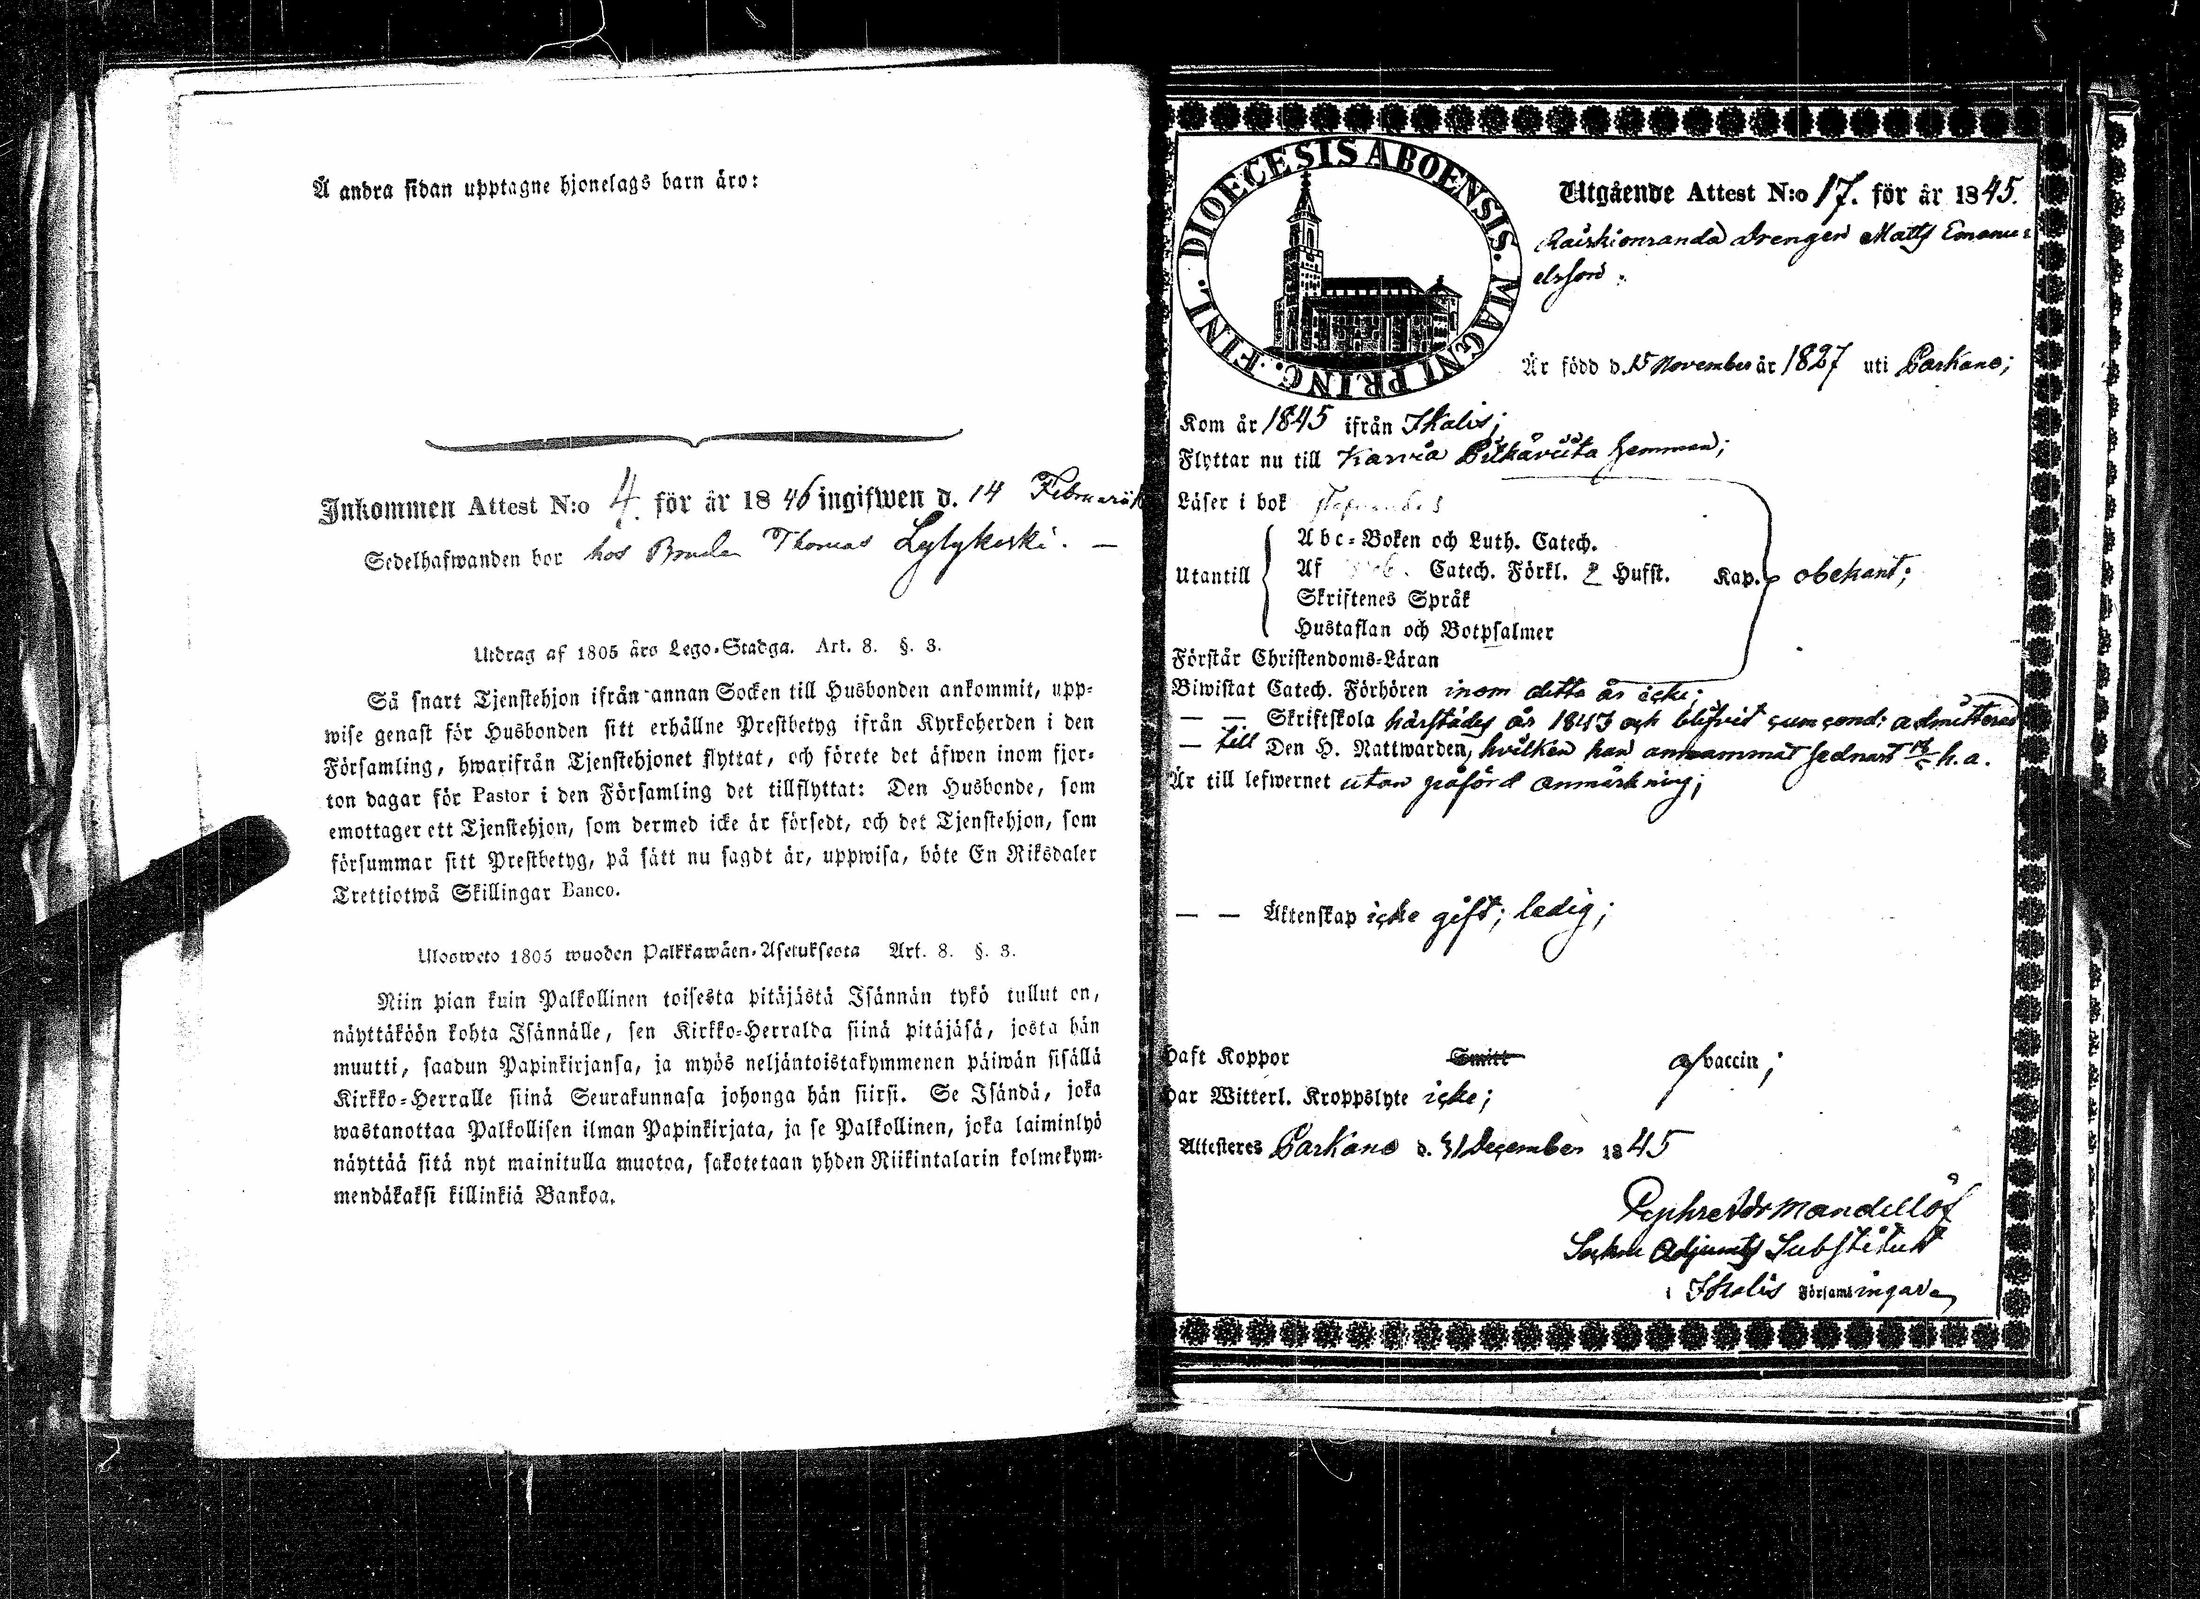 Å andra sidan upptagne hjonelags barn äro:
Inkommen Attest N:o 4. för år 1846 ingifwen d. 14 Februarii
Sedelhafwanden bor hos Thomas Lylykoski. —
Utdrag af 1805 års Lego-Stadga. Art. 8. §. 3.
Så snart Tjenstehjon ifrån annan Socken till Husbonden ankommit, upp-
wise genast för Husbonden sitt erhållne Prestbetyg ifrån Kyrkoherden i den
Församling, hwarifrån Tjenstehjonet flyttat, och förete det äfwen inom fjor-
ton dagar för Pastor i den Församling det tillflyttat: Den Husbonde, som
emottager ett Tjenstehjon, som dermed icke är försedt, och det Tjenstehjon, som
försummar sitt Prestbetyg, på sätt nu sagdt är, uppwisa, böte En Riksdaler
Trettiotwå Skillingar Banco.
Ulosweto 1805 wuoden Palkkawäen-Asetuksesta Art. 8. §. 3.
Niin pian kuin Palkollinen toisesta pitäjästä Isännän tykö tullut on,
näyttäköön kohta Isännälle, sen Kirkko-Herralda siinä pitäjäsä, josta hän
muutti, saadun Papinkirjansa, ja myös neljäntoistakymmenen päiwän sisällä
Kirkko-Herralle siinä Seurakunnasa johonga hän siirsi. Se Isändä, joka
wastanottaa Palkollisen ilman Papinkirjata, ja se Palkollinen, joka laiminlyö
näyttää sitä nyt mainitulla muotoa, sakotetaan yhden Riikintalarin kolmekym-
mendäkaksi killinkiä Bankoa.
DIOECESIS ABOENSIS. MAGNI PRINC. FINL.
Utgående Attest N:o 17. för år 1845.
drengen Matts Emanu-
elsson.
Är född d. 15 November år 1827 uti Parkano;
Kom år 1845 ifrån Ikalis;
Flyttar nu till Karvia hemman;
Läser i bok
Abc-Boken och Luth. Catech.
Utantill Af Catech. Förkl. 2 Hufst. Kap. obekant;
Skriftenes Språk
Hustaflan och Botpsalmer
Förstår Christendoms-Läran
Biwistat Catech. Förhören inom detta år icke;
— — Skriftskola härstädes år 1843 och blifvit admitterad
— till Den H. Nattwarden, hvilken han annammat sednast h. a.
Är till lefwernet utan påförd anmärkning;
— — Äktenskap icke gift; ledig;
Haft Koppor Smitt af vaccin;
Har Witterl. Kroppslyte icke;
Attesteres Parkano d. 31 December 1845
Mandellöf
Socken Adjuncts Substitut
i Ikalis Församlingar